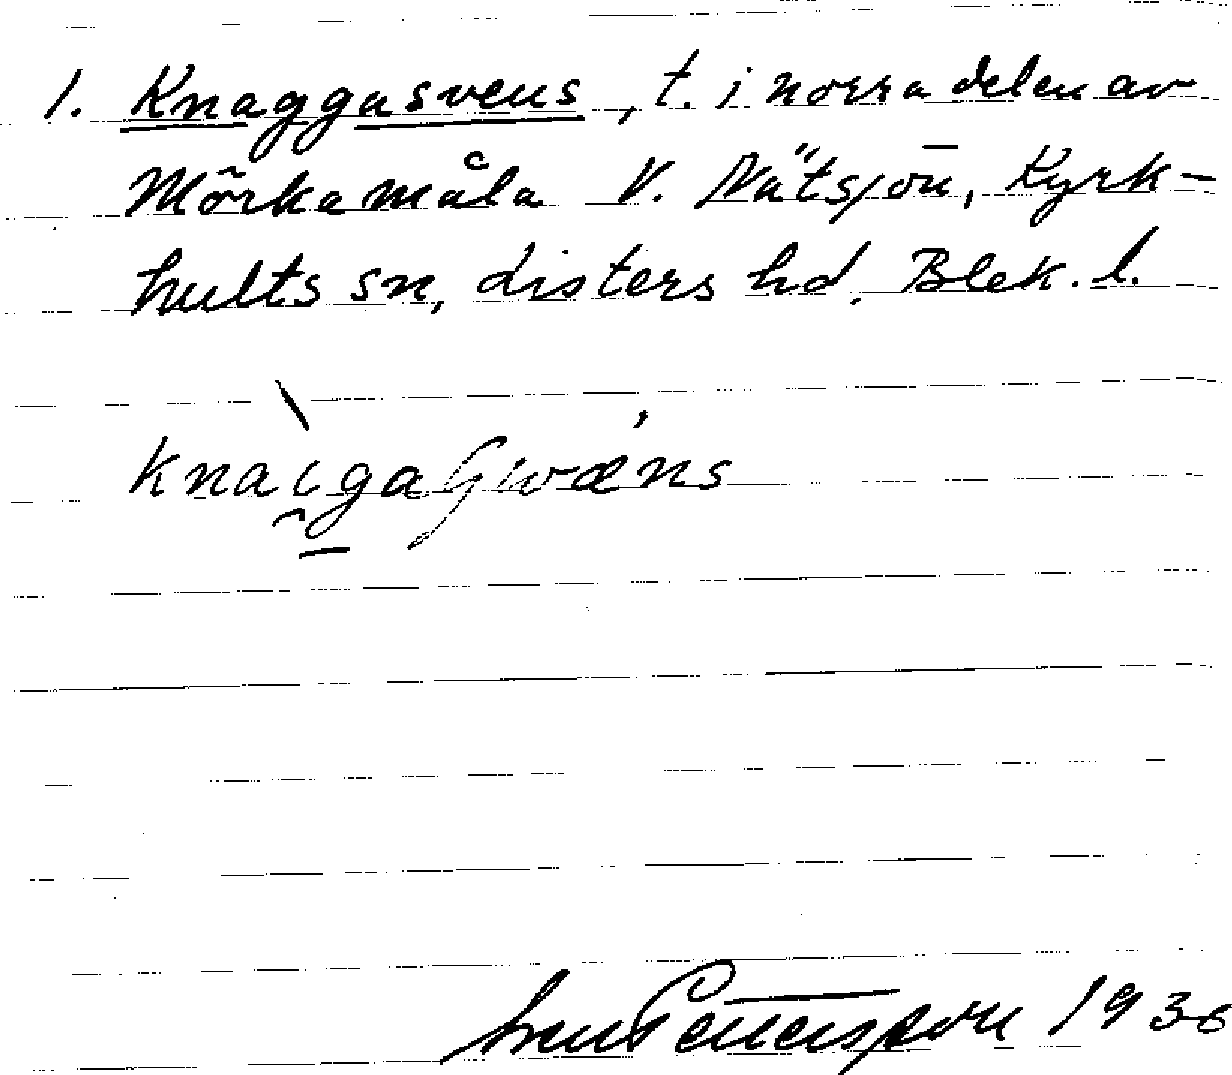 1. Knaggasvens, t. i norra delen av
Mörkamåla V. Nätsjön, Kyrk-
hults sn, Listers hd, Blek. l.
1936